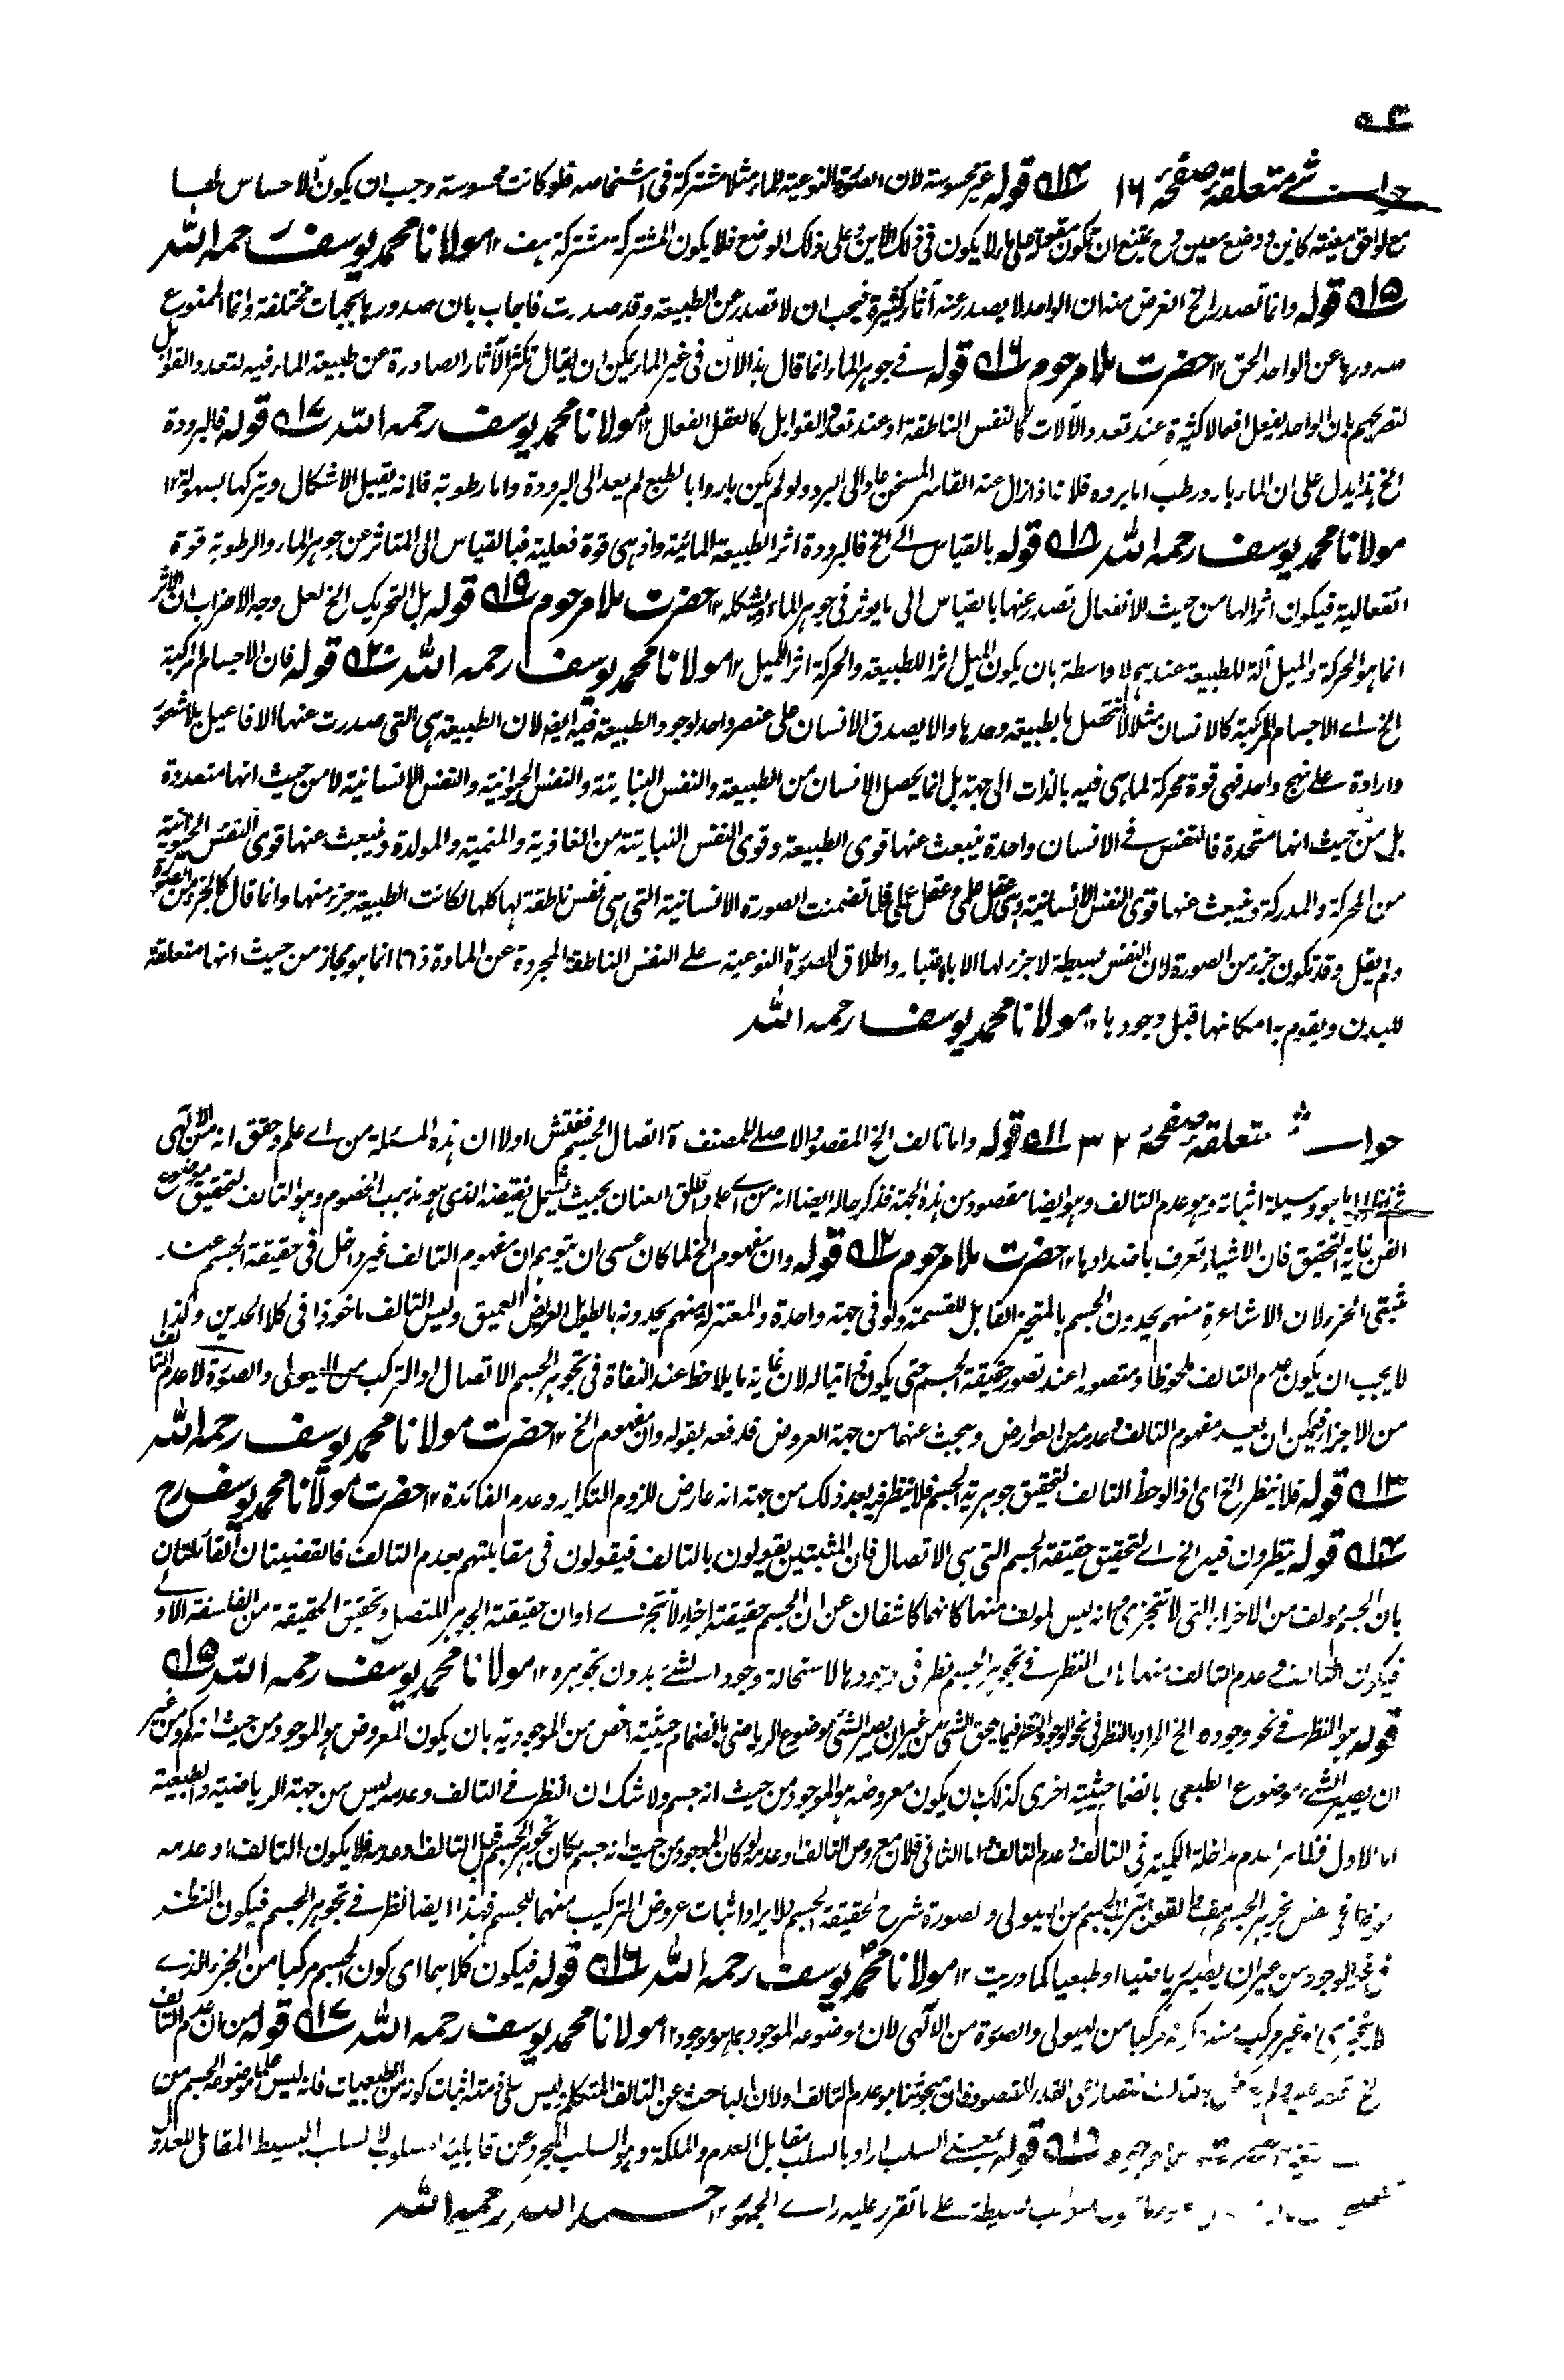 ٥٤
حواشے متعلقہ صفحہ ١٦ ١٤ قوله غير محسوسة لان الصورة النوعية للماء مثلا مشتركة فى اشخاصه فلو كانت محسوسة وجب ان يكون الاحساس لها
مع لواحق معينة كاين و وضع معين و ح يمتنع ان تكون مقولة على ما لا يكون فى ذلك الاين و على ذلك الوضع فلا يكون المشتركة مشتركة هف ١٢ مولانا محمد يوسف رحمه الله
١٥ قوله وانما تصدر الخ الغرض منه ان الواحد لا يصدر عنه آثار كثيرة فيجب ان لا تصدر عن الطبيعة وقد صدرت فاجاب بان صدورها بجهات مختلفة وانما الممنوع
صدورها عن الواحد الحق ١٢ حضرت ملا مرحوم ١٦ قوله فى جوهر الماء انما قال هذا لان فى غير الماء يمكن ان يقال تكثر الآثار الصادرة عن طبيعة الماء فيه لتعدد القوابل
لتصريحهم بان الواحد يفعل افعالا كثيرة عند تعدد الآلات كالنفس الناطقة او عند تعدد القوابل كالعقل الفعال ١٢ مولانا محمد يوسف رحمه الله ١٧ قوله فالبرودة
الخ هذا يدل على ان الماء بارد رطب اما برده فلانه اذا زال عنه القاسر المسخن عاد الى البرد ولو لم يكن باردا بالطبع لم يعد الى البرودة واما رطوبته فلانه يقبل الاشكال ويتركها بسهولة ١٢
مولانا محمد يوسف رحمه الله ١٨ قوله بالقياس الى الخ فالبرودة اثر الطبيعة المائية واذ هى قوة فعلية فبالقياس الى المتاثر عن جوهر الماء والرطوبة قوة
انفعالية فيكون اثرا لها من حيث الانفعال تصدر عنها بالقياس الى ما يوثر فى جوهر الماء ويشكله ١٢ حضرت ملا مرحوم ١٩ قوله بل التحريك الخ لعل وجه الاضراب ان الاثر
انما هو الحركة والميل آلة للطبيعة عندهم لا واسطة بان يكون الميل اثرا للطبيعة والحركة اثرا للميل ١٢ مولانا محمد يوسف رحمه الله ٢٠ قوله فان الاجسام المركبة
الخ اے الاجسام المركبة كالانسان مثلا لا تتحصل بالطبيعة وحدها والا يصدق الانسان على عنصر واحد لوجود الطبيعة فيه ايضا لان الطبيعة هى التى صدرت عنها الافاعيل بلا شعور
وارادة على نهج واحد فهى قوة محركة لما هى فيه بالذات الى جهة بل انما يحصل الانسان من الطبيعة والنفس النباتية والنفس الحيوانية والنفس الانسانية لا من حيث انها متعددة
بل من حيث انها متحدة فالنفس فى الانسان واحدة ينبعث عنها قوى الطبيعة وقوى النفس النباتية من الغاذية والمنمية والمولدة وينبعث عنها قوى النفس الحيوانية
من المحركة والمدركة وينبعث عنها قوى النفس الانسانية وهى عقل علمى وعقل عملى فلما تضمنت الصورة الانسانية التى هى نفس ناطقة لها كلها لكانت الطبيعة جزء منها وانما قال كالجزء من الصورة
ولم يقل وقد تكون جزء من الصورة لان النفس بسيطة لا جزء لها الا بالاعتبار واطلاق الصورة النوعية على النفس الناطقة المجردة عن المادة ذاتا انما هو مجاز من حيث انها متعلقة
للبدن ويقوم به امكانها قبل وجودها ١٢ مولانا محمد يوسف رحمه الله
حواشے متعلقہ صفحہ ٣٢ ١١ قوله واما تالف الخ المقصود الاصلے للمصنف اتصال الجسم ففتش اولا ان هذه المسئلة من اے علم وحقق انه من الآلهى
ما هو وسيلة اثباته وهو عدم التالف وهو ايضا مقصود من هذه الجهة فذكر حاله ايضا انه من اے علم واطلق العنان بحيث يشمل نقيضه الذى هو مذهب الخصوم وهو التالف لتحقيق موضوع
الفن غاية التحقيق فان الاشياء تعرف باضدادها ١٢ حضرت ملا مرحوم ١٢ قوله وان مفهوم الخ لما كان عسى ان يتوهم ان مفهوم التالف غير داخل فى حقيقة الجسم عند
مثبتى الجزء لان الاشاعرة منهم يحدون الجسم بالمتحيز القابل للقسمة ولو فى جهة واحدة والمعتزلة منهم يحدونه بالطويل العريض العميق وليس التالف ماخوذا فى كلا الحدين وكذا
لا يجب ان يكون عدم التالف ملحوظا ومتصورا عند تصور حقيقة الجسم حتى يكون ذاتيا له لان غاية ما يلاحظ عند النفاة فى تجوهر الجسم الاتصال او التركب من الهيولى والصورة لا عدم التالف
من الاجزاء فيمكن ان يعد مفهوم التالف وعدمه من العوارض ويبحث عنها من جهة العروض فدفعه بقوله وان مفهوم الخ ١٢ حضرت مولانا محمد يوسف رحمه الله
١٣ قوله فلا ينظر الخ اى اذا لوحظ التالف لتحقيق جوهرية الجسم فلا ينظر فيه بعد ذلك من جهة انه عارض للزوم التكرار وعدم الفائدة ١٢ حضرت مولانا محمد يوسف رح
١٤ قوله ينظرون فيه الخ اے لتحقيق حقيقة الجسم التى هى الاتصال فان المثبتين يقولون بالتالف فيقولون فى مقابلتهم بعدم التالف فالقضيتان القائلتان
بان الجسم مولف من الاجزاء التى لا تتجزى مع انه ليس بمولف منها كانهما كاشفان عن ان الجسم حقيقة اجزاء لا تتجزے او ان حقيقة الجوهر المتصل وتحقيق الحقيقة من الفلسفة الاولے
فيكون التالف وعدم التالف منها لان النظر فى تجوهر الجسم نظر فى وجودها لاستحالة وجود الشئ بدون تجوهره ١٢ مولانا محمد يوسف رحمه الله ١٥
قوله هو النظر فى نحو وجوده الخ المراد بالنظر فى نحو الوجود النظر فيما يحق الشئ من غير ان يصير الشئ موضوع الرياضى بانضمام حيثية اخص من الموجودية بان يكون المعروض هو الموجود من حيث انه كم ومن غير
ان يصير الشئ موضوع الطبعى بانضمام حيثية اخرى كذلك بان يكون معروضه هو الموجود من حيث انه جسم ولا شك ان النظر فى التالف وعدمه ليس من جهة الرياضية والطبعية
اما الاول فلظاهر عدم مداخلة الكمية فى التالف وعدم التالف واما الثانى فلان معروض التالف وعدمه لو كان الموجود من حيث انه جسم لكان تجوهر الجسم قبل التالف وعدمه فلا يكون التالف او عدمه
الجسم من الهيولى والصورة شرح لحقيقة الجسم لا يراد اثبات عروض التركيب منهما للجسم فهذا ايضا نظر فى تجوهر الجسم فيكون النظر
فى نحو الوجود من غير ان يصير رياضيا او طبعيا كما دريت ١٢ مولانا محمد يوسف رحمه الله ١٦ قوله فيكون كلاهما اى كون الجسم مركبا من الجزء الذے
لا يتجزى او غير مركب منه او كونه مركبا من الهيولى والصورة من الآلهى لان موضوعه الموجود بما هو موجود ١٢ مولانا محمد يوسف رحمه الله ١٧ قوله من ان عدم التالف
١٨ قوله بمعنى السلب اراد بالسلب مقابل العدم والملكة وهو السلب المجرد عن قابلية المسلوب لا السلب البسيط المقابل للعدول
بسيطة على ما تقرر عليه راے الجمهور ١٢ حمد الله رحمه الله